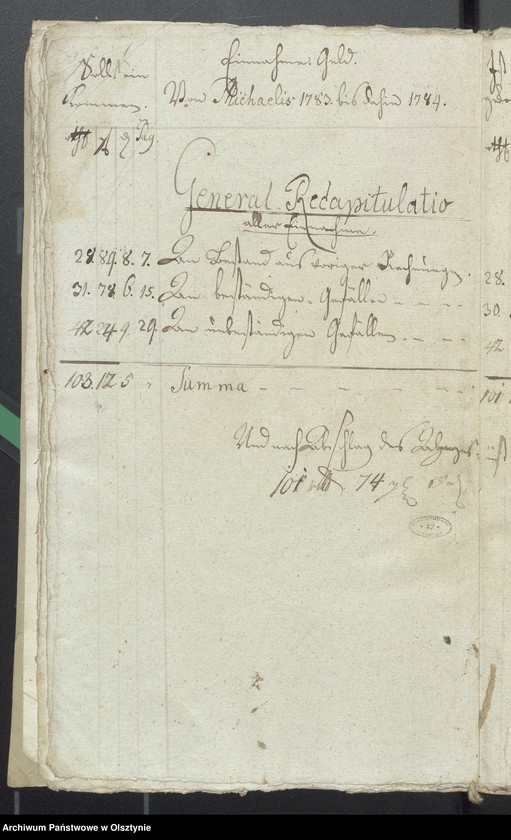 Soll ein Kommen.
Einnahme. Geld.
Von Michaelis 1783. bis dahin 1784.
rthl gl Pag.
General Recapitulatio
aller Einnahme.
28. 89. 8. 7. An Bestand aus voriger Rechnung.
31. 78. 6. 15. An beständigen Gefällen
42 24 9. 29. An unbeständigen Gefällen
103. 12 5 Summa
Und nach Abschlag des
101 rthl 74 gl
28.
30.
42
101
Archiwum Państwowe w Olsztynie